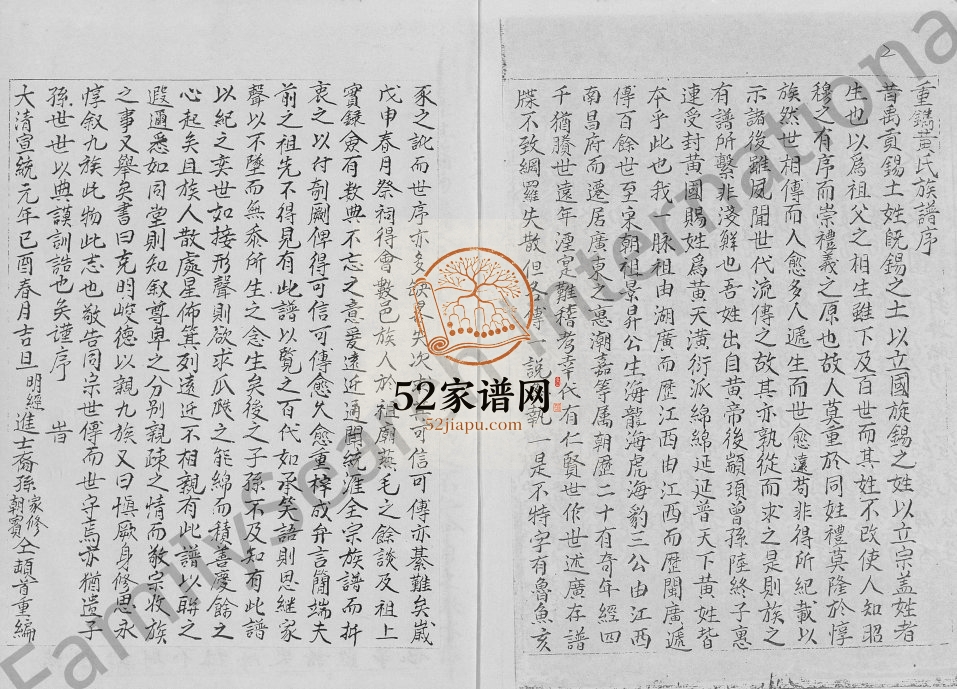 重鐫黄氏族譜序
昔禹貢錫土姓旣錫之土以立國旋錫之姓以立宗盖姓者
生也以為祖父之相生雖下及百世而其姓不改使人知昭
穆之有序而崇禮義之原也故人莫重於同姓禮莫隆於惇
族然世相傳而人愈多人遞生而世愈遠苟非得所紀載以
示諸後雖風聞世代流傳之故其亦孰從而求之是則族之
有譜所繫非淺鮮也吾姓出自黄帝後顓頊曾孫陸終子惠
連受封黄國賜姓爲黄天潢衍派綿綿延延普天下黄姓皆
夲乎此也我一脉祖由湖廣而歷江西由江西而歷閩廣遞
傳百餘世至宋朝祖景昇公生海龍海虎海豹三公由江西
南昌府而遷居廣東之惠潮嘉等属朝歷二十有奇年經四
千猶賸世遠年湮寔難稽考幸代有仁賢世作世述廣存譜
牒不致網羅失散但各傳一說 執一是不特字有魯魚亥
豕之訛而世序亦多 失次 可信可傳亦綦難矣歲
戊申春月祭祠得會數邑族人於祖廟燕毛之餘談及祖上
實録僉有数典不忘之意爰遠近通聞統滙全宗族譜而折
衷之以付剞劂俾得可信可傳愈久愈重梓成弁言簡端夫
前之祖先不得見有此譜以覽之百代如承矣語則思継家
聲以不墜而無忝所生之念生矣後之子孫不及知有此譜
以紀之奕世如接形聲則欲求瓜瓞之能綿而積善慶餘之
心起矣且族人散處星佈箕列遠近不相親有此譜以聨之
遐邇悉如同堂則知叙尊卑之分别親疎之情而敬宗收族
之事又舉矣書曰克明峻德以親九族又曰慎厥身修思永
惇叙九族此物此志也敬告同宗世傳而世守焉亦猶遺子
孫世世以典謨訓誥也矣謹序 旹
大清宣統元年已酉春月吉旦 明經進士裔孫家修朝賓仝頓首重編
52家谱网
52jiapu.com
FamilySearch International
FamilySearch International